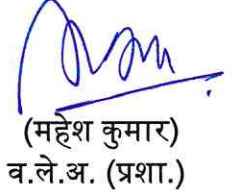 (महेश कुमार)
व.ले.अ. (प्रशा.)